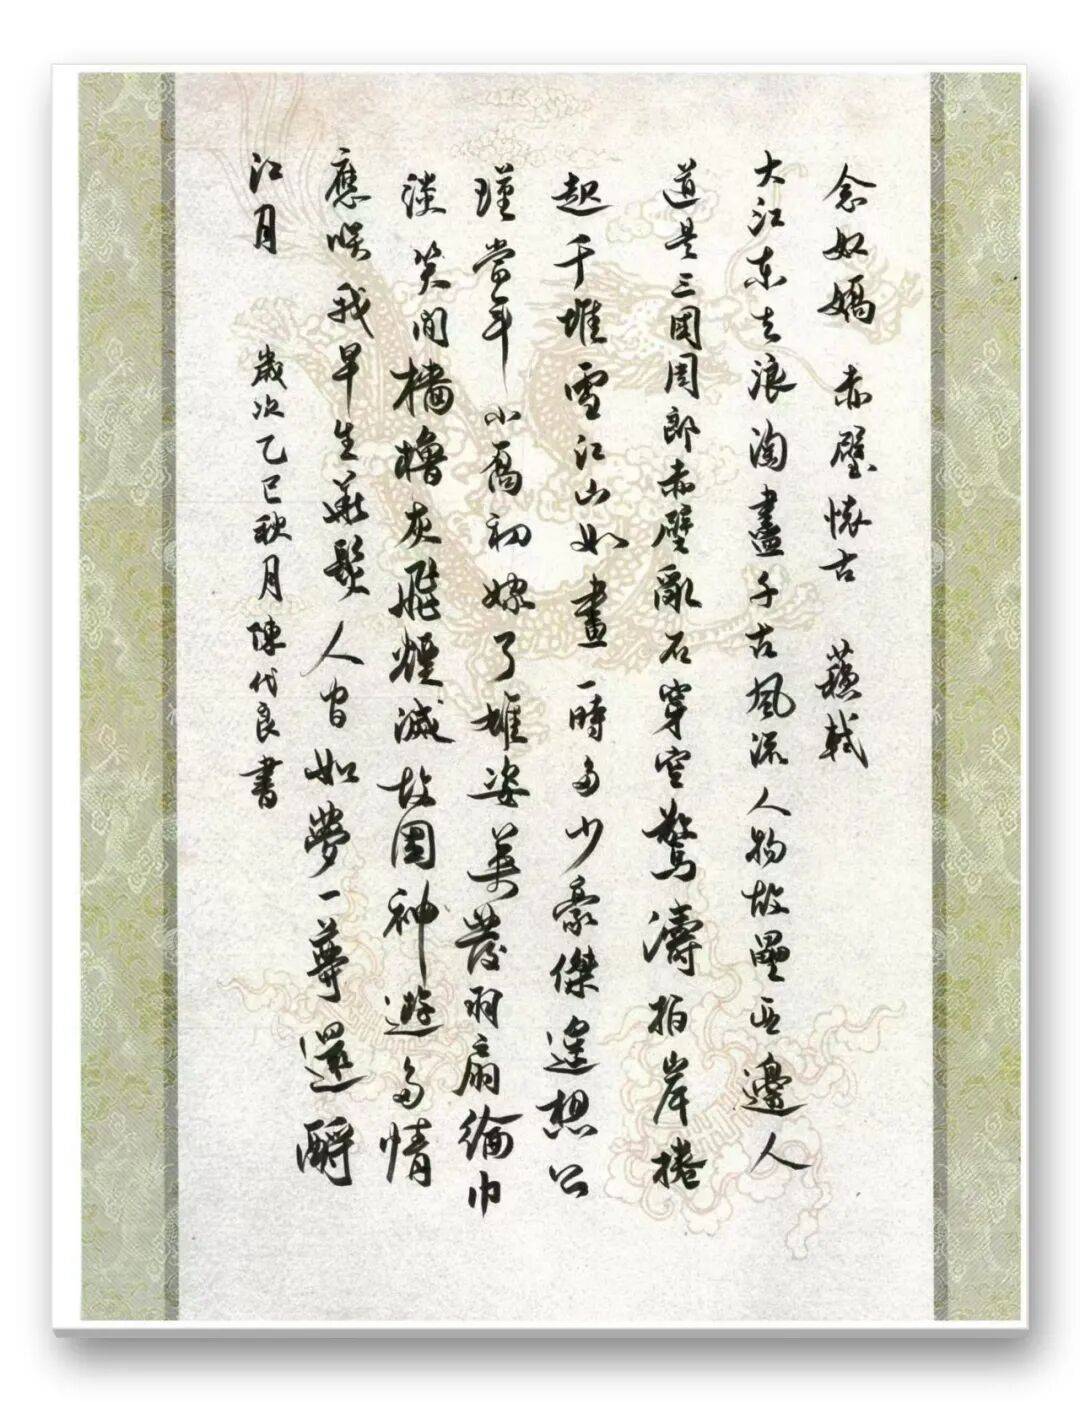 念奴嬌 赤壁懷古 蘇軾
大江東去浪淘盡千古風流人物故壘西邊人
道是三國周郎赤壁亂石穿空驚濤拍岸捲
起千堆雪江山如畫一時多少豪傑遙想公
瑾當年小喬初嫁了雄姿英發羽扇綸巾
談笑間檣櫓灰飛煙滅故國神遊多情
應笑我早生華髮人間如夢一尊還酹
江月 歲次乙巳秋月陳代良書